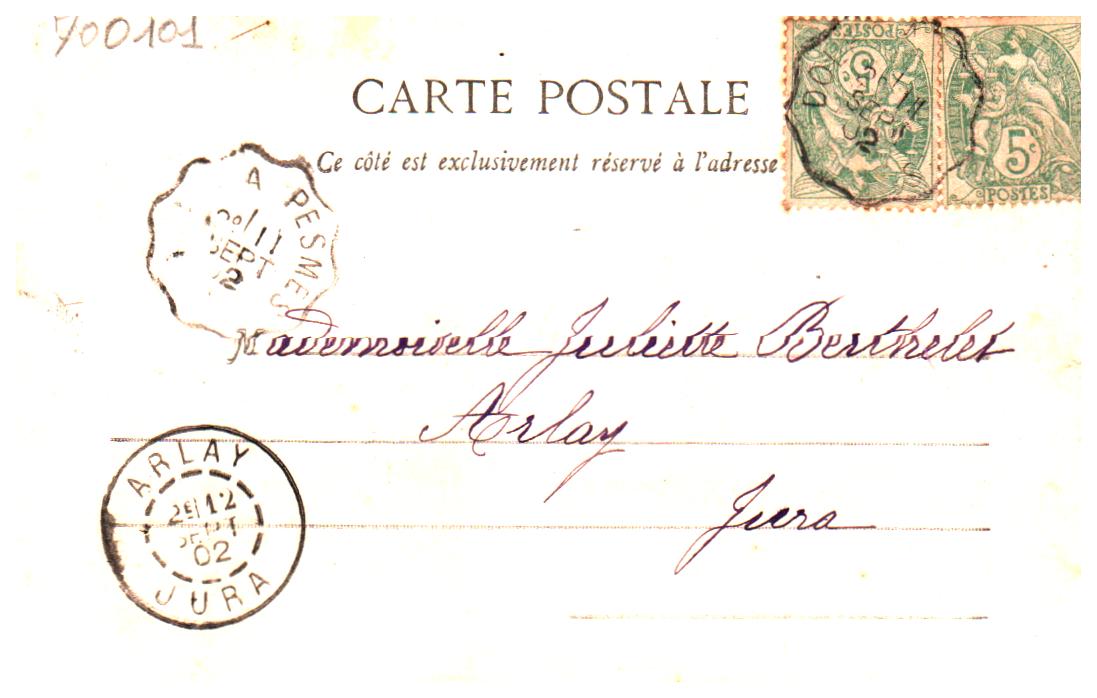 700101
CARTE POSTALE
Ce côté est exclusivement réservé à l'adresse
POSTES
5c
POSTES
DOL
SEPT
A PESMES
11
SEPT
02
Mademoiselle Juliette Berthelet
Arlay
Jura
ARLAY
2E/12
SEPT
02
JURA